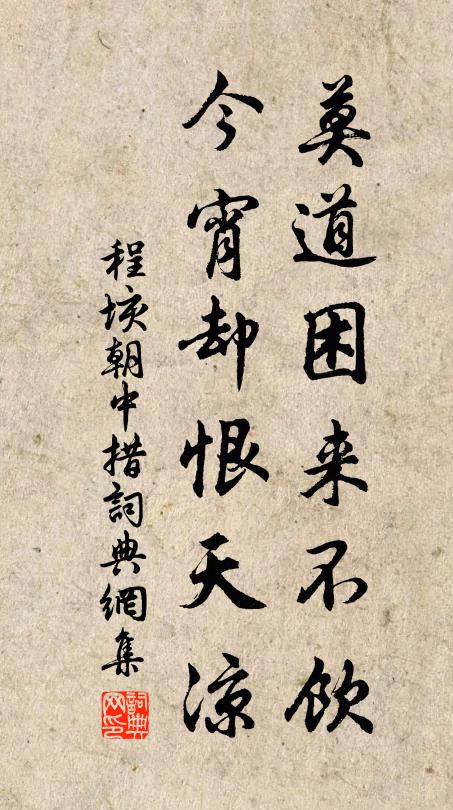 莫道困来不飲
今宵却恨天凉
程垓朝中措詞典網集
詞典网印